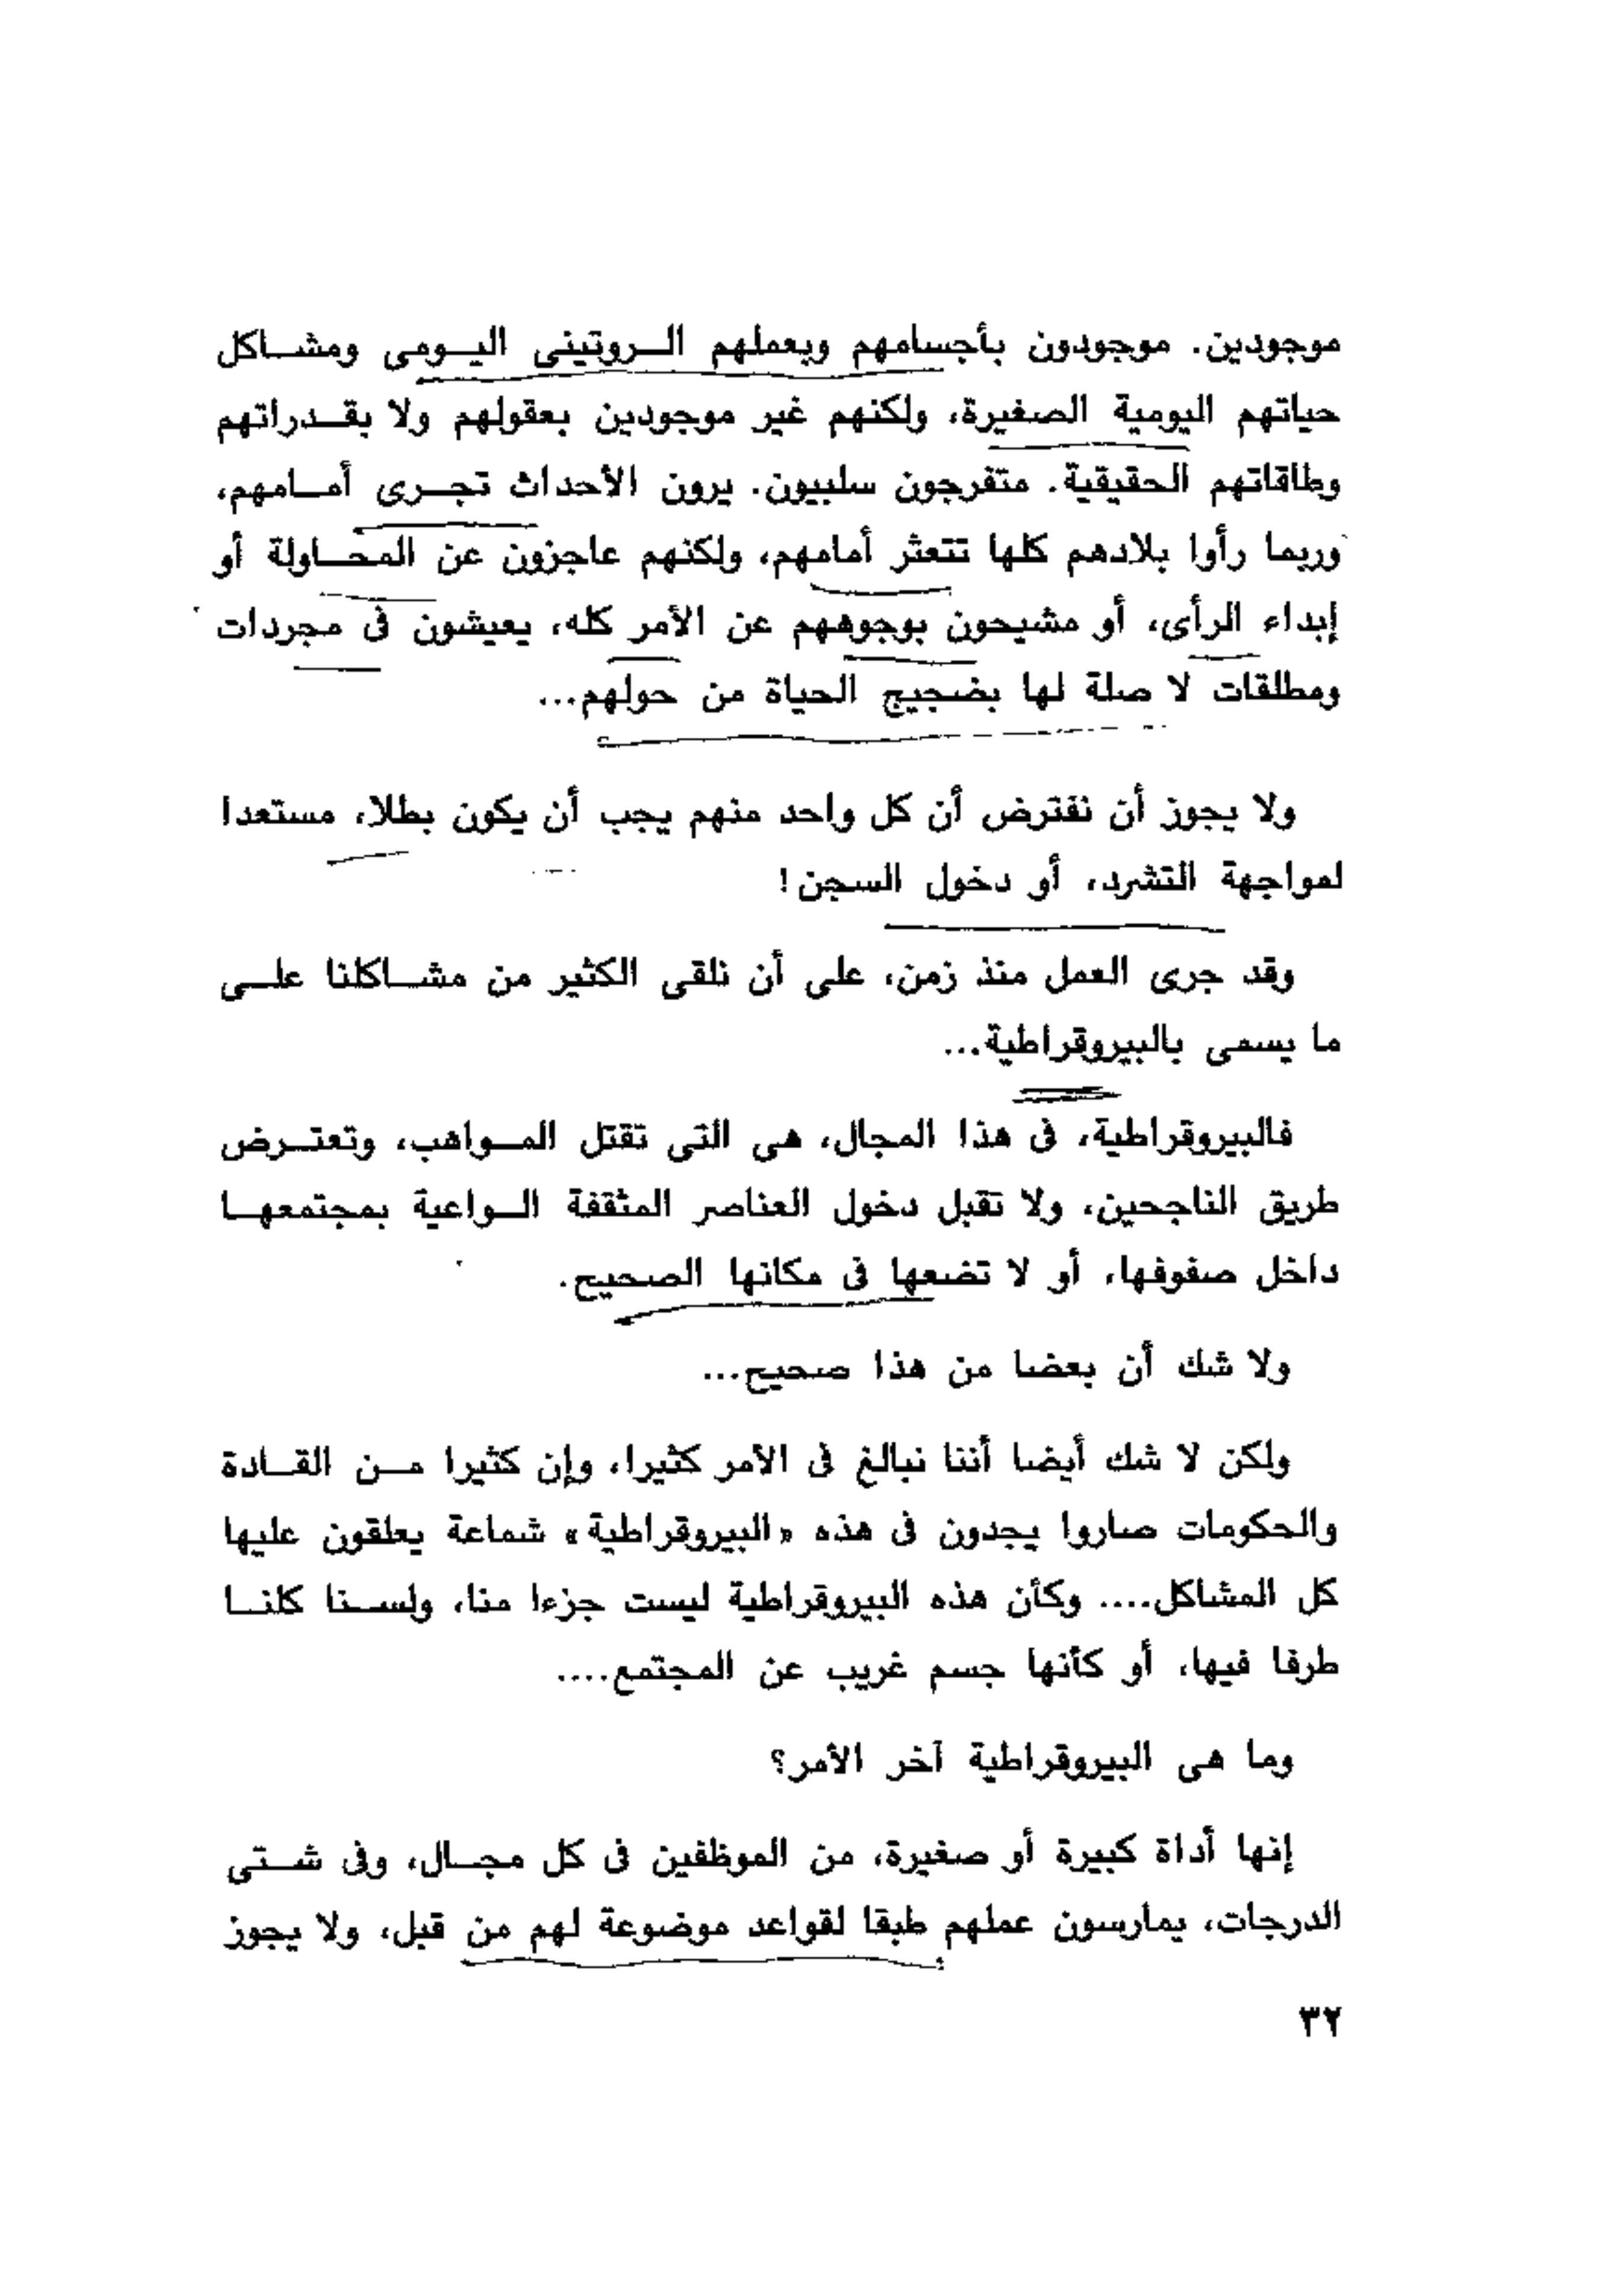 موجودين. موجودون بأجسامهم وبعملهم الروتينى اليومى ومشاكل
حياتهم اليومية الصغيرة، ولكنهم غير موجودين بعقولهم ولا بقدراتهم
وطاقاتهم الحقيقية. متفرجون سلبيون. يرون الأحداث تجرى أمامهم،
وربما رأوا بلادهم كلها تتعثر أمامهم، ولكنهم عاجزون عن المحاولة أو
إبداء الرأى، أو مشيحون بوجوههم عن الأمر كله، يعيشون فى مجردات
ومطلقات لا صلة لها بضجيج الحياة من حولهم...
ولا يجوز أن نفترض أن كل واحد منهم يجب أن يكون بطلا، مستعدا
لمواجهة التشرد، أو دخول السجن!
وقد جرى العمل منذ زمن، على أن نلقى الكثير من مشاكلنا على
ما يسمى بالبيروقراطية...
فالبيروقراطية، فى هذا المجال، هى التى تقتل المواهب، وتعترض
طريق الناجحين، ولا تقبل دخول العناصر المثقفة الواعية بمجتمعها
داخل صفوفها، أو لا تضعها فى مكانها الصحيح.
ولا شك أن بعضا من هذا صحيح...
ولكن لا شك أيضا أننا نبالغ فى الأمر كثيرا، وإن كثيرا من القادة
والحكومات صاروا يجدون فى هذه «البيروقراطية» شماعة يعلقون عليها
كل المشاكل.... وكأن هذه البيروقراطية ليست جزءا منا، ولسنا كلنا
طرفا فيها، أو كأنها جسم غريب عن المجتمع....
وما هى البيروقراطية آخر الأمر؟
إنها أداة كبيرة أو صغيرة، من الموظفين فى كل مجال، وفى شتى
الدرجات، يمارسون عملهم طبقا لقواعد موضوعة لهم من قبل، ولا يجوز
٣٢